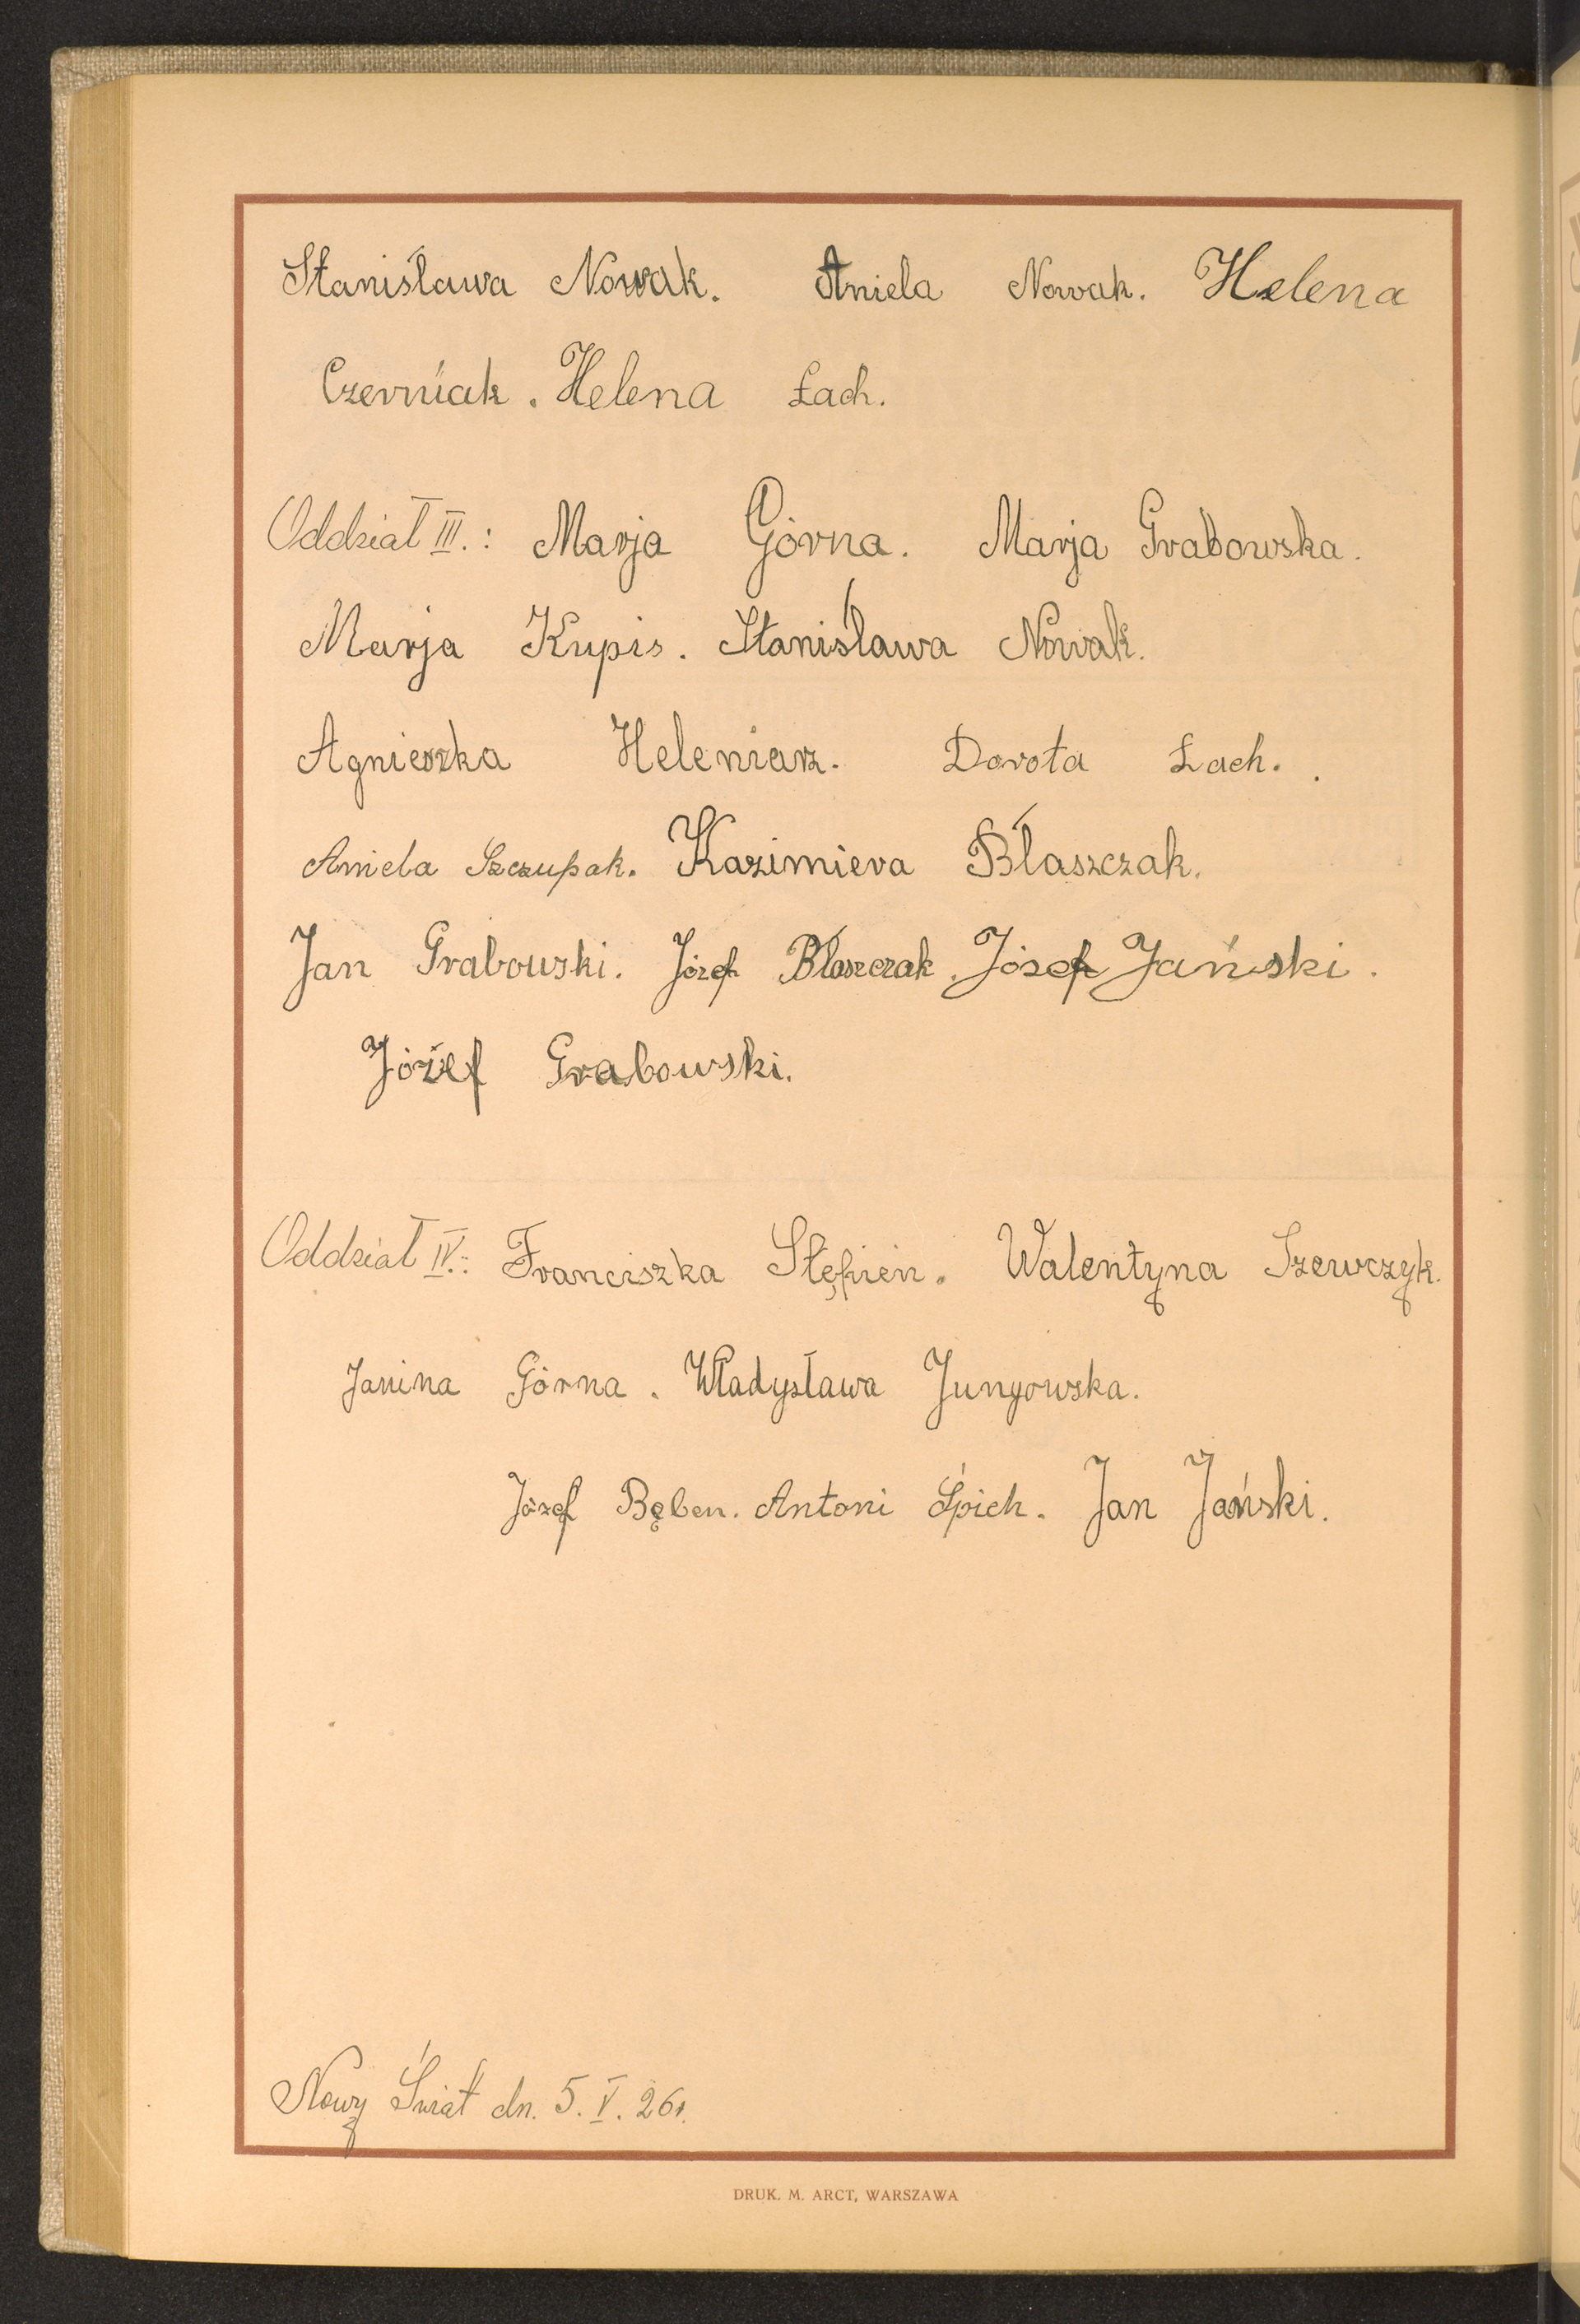 Stanisława Nowak. Aniela Nowak. Helena
Czerniak. Helena Łach.
Oddział III.: Marja Górna. Marja Grabowska.
Marja Kupis. Stanisława Nowak.
Agnieszka Heleniarz. Dorota Łach.
Aniela Szczupak. Kazimiera Błaszczak.
Jan Grabowski. Józef Błaszczak. Józef Jański.
Józef Grabowski.
Oddział IV.: Franciszka Stępień. Walentyna Szewczyk.
Janina Górna. Władysława Jungowska.
Józef Bęben. Antoni Śpich. Jan Jański.
Nowy Świat dn. 5. V. 26r.
DRUK. M. ARCT, WARSZAWA